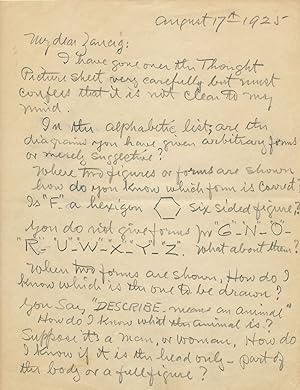 August 17th 1925
My dear Zancig:
I have gone over the Thought
Picture sheet very carefully but must
confess that it is not clear to my
mind.
In the alphabetic list, are the
diagrams you have given arbitrary forms
or merely suggestive?
Where two figures or forms are shown
how do you know which form is correct?
Is "F" a hexigon six sided figure?
You do not give forms for "G"-"N"-"O"-
"R"-"U"-"W"-"X"-"Y"-"Z". What about them?
When two forms are shown, How do I
know which is the one to be drawn?
You say, "DESCRIBE - means an animal"
How do I know what the animal is?
Suppose it's a man, or woman, How do
I know if it is the head only - part of
the body or a full figure?